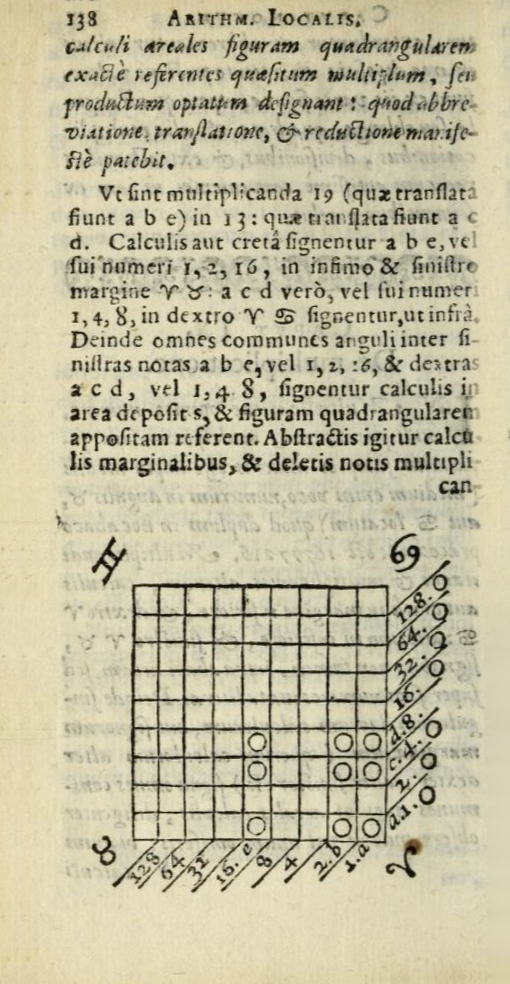 138 ARITHM. LOCALIS.
calculi areales figuram quadrangularem
exactè referentes quæsitum multiplum, seu
productum optatum designant: quod abbre-
viatione, translatione, & reductione manife-
stè patebit.
Vt sint multiplicanda 19 (quæ translata
fiunt a b e) in 13: quæ translata fiunt a c
d. Calculis aut cretâ signentur a b e, vel
sui numeri 1, 2, 16, in infimo & sinistro
margine ♈ ♉: a c d verò, vel sui numeri
1, 4, 8, in dextro ♈ ♋ signentur, ut infrà.
Deinde omnes communes anguli inter si-
nistras notas a b e, vel 1, 2, 16, & dextras
a c d, vel 1, 4 8, signentur calculis in
area deposit s, & figuram quadrangularem
appositam referent. Abstractis igitur calcu
lis marginalibus, & deletis notis multipli
can-
♊ ♋
128.
64.
32.
16.
d.8.
c.4.
2.
a.1.
♉ 128 64 32 16.e 8 4 2.b 1.a ♈